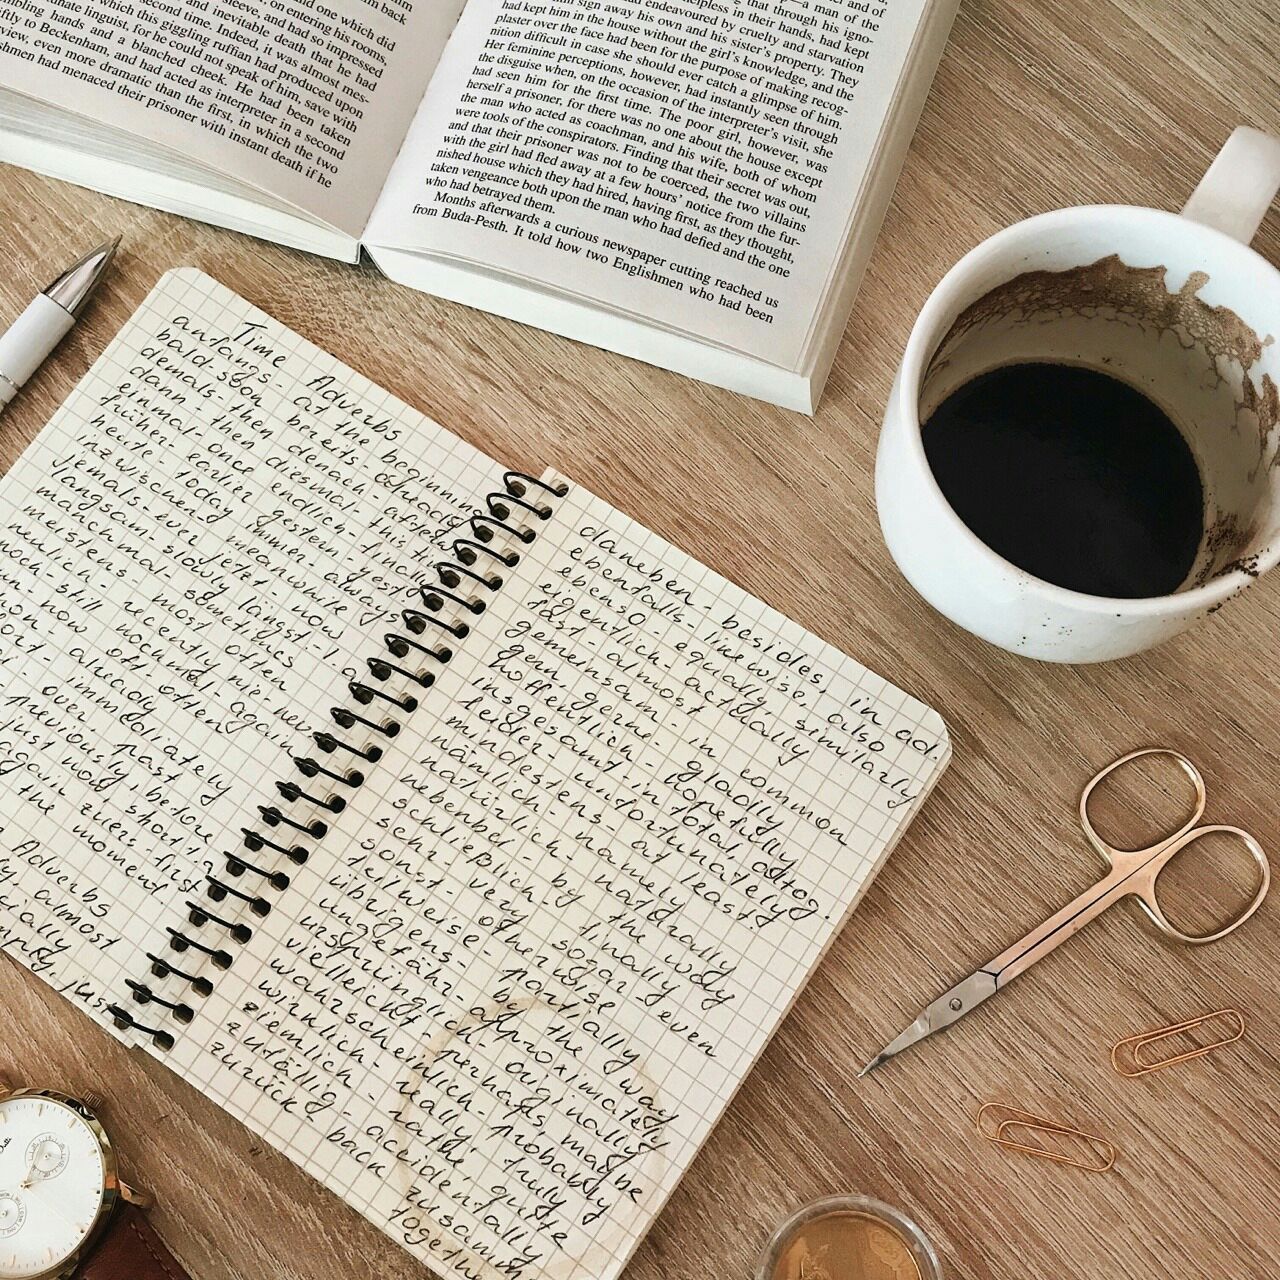 and one which did
on entering his rooms,
sleeve, and had so impressed
and inevitable death that he had
second time. Indeed, it was almost mes-
which this giggling ruffian had produced upon
linguist, for he could not speak of him, save with
hands and a blanched cheek. He had been taken
Beckenham, and had acted as interpreter in a second
even more dramatic than the first, in which the two
had menaced their prisoner with instant death if he
a man of the
that through his igno-
helpless in their hands, had kept
had endeavoured by cruelty and starvation
sign away his own and his sister's property. They
had kept him in the house without the girl's knowledge, and the
plaster over the face had been for the purpose of making recog-
nition difficult in case she should ever catch a glimpse of him.
Her feminine perceptions, however, had instantly seen through
the disguise when, on the occasion of the interpreter's visit, she
had seen him for the first time. The poor girl, however, was
herself a prisoner, for there was no one about the house except
the man who acted as coachman, and his wife, both of whom
were tools of the conspirators. Finding that their secret was out,
and that their prisoner was not to be coerced, the two villains
with the girl had fled away at a few hours' notice from the fur-
nished house which they had hired, having first, as they thought,
taken vengeance both upon the man who had defied and the one
who had betrayed them.
Months afterwards a curious newspaper cutting reached us
from Buda-Pesth. It told how two Englishmen who had been
Time Adverbs
anfangs - at the beginning
bald - soon bereits - already
demals - then danach - after
dann - then diesmal - this time
einmal - once endlich - finally
früher - earlier gestern -
heute - today immer - always
inzwischen - meanwhile
jemals - ever jetzt - now
langsam - slowly längst -
manchmal - sometimes
meistens - most often
neulich - recently nie - never
noch - still nochmal - again
now oft - often
already
immediately
over, past
previously, before
just now, shortly
again zuerst - first
the moment
Adverbs
almost
daneben - besides, in ad.
ebenfalls - likewise, also
ebenso - equally similarly
eigentlich - actually
fast - almost
gemeinsam - in common
gern, gerne - gladly
hoffentlich - hopefully
insgesamt - in total,
leider - unfortunately
mindestens - at least
nämlich - namely
natürlich - naturally
nebenbei - by the way
schließlich - finally
sehr - very sogar - even
sonst - otherwise
teilweise - partially
übrigens - by the way
ungefähr - approximately
ursprünglich - originally
vielleicht - perhaps, maybe
wahrscheinlich - probably
wirklich - really, truly
ziemlich - quite
zufällig - accidentally
zurück - back